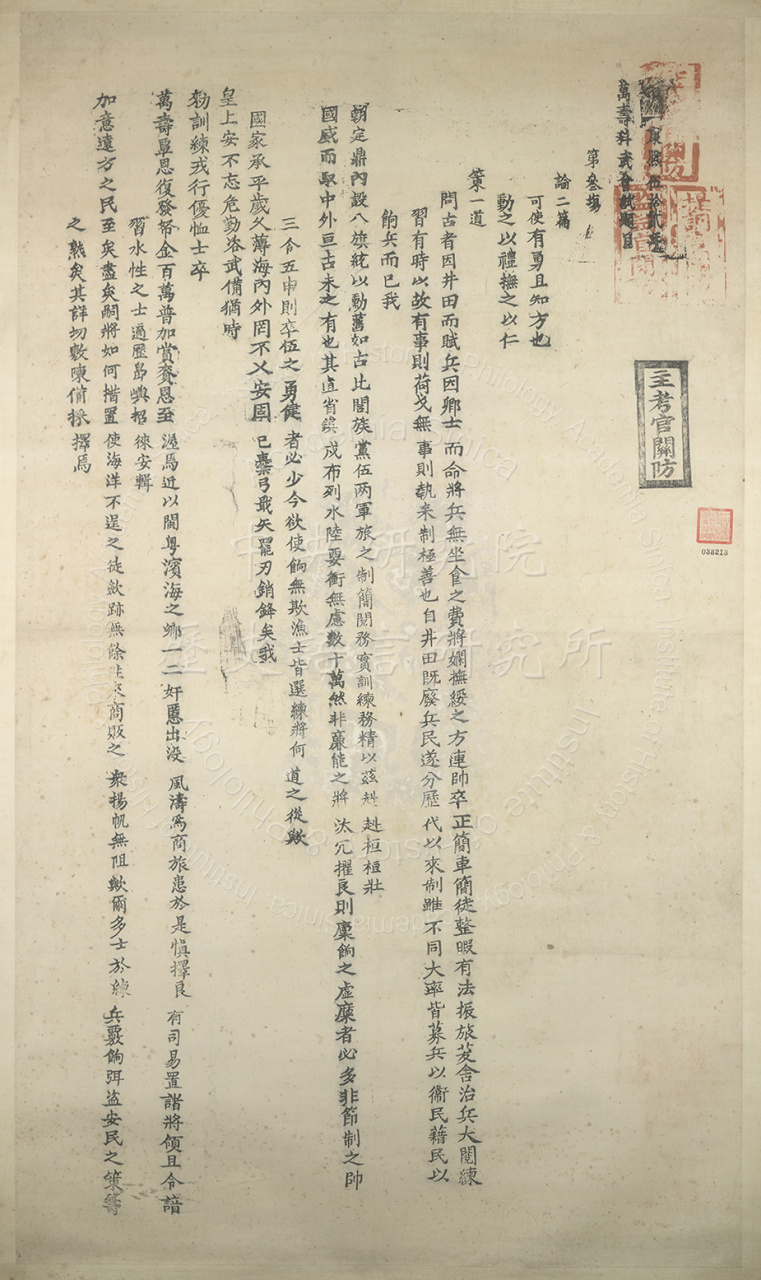 康熙伍拾貳年
萬壽科武會試題目
第叁塲
論二篇
可使有勇且知方也
動之以禮撫之以仁
策一道
問古者因井田而賦兵因鄉士而命將兵無坐食之費將嫻撫綏之方連帥卒正簡車簡徒整暇有法振旅茇舍治兵大閱練
習有時以故有事則荷戈無事則執耒制極善也自井田既廢兵民遂分歷代以來制雖不同大率皆募兵以衞民藉民以
餉兵而已我
朝定鼎內設八旗統以勳舊如古比閭族黨伍两軍旅之制簡閱務實訓練務精以茲赳赳桓桓壯
國威而馭中外亘古未之有也其直省鎮戍布列水陸要衝無慮數十萬然非廉能之將汰冗擢良則廩餉之虛糜者必多非節制之帥
三令五申則卒伍之勇健者必少今欲使餉無欺漁士皆選練將何道之從歟
國家承平歲久薄海內外罔不乂安固已櫜弓戢矢罷刃銷鋒矣我
皇上安不忘危勤咨武備猶時
勑訓練戎行優恤士卒
萬壽覃恩復發帑金百萬普加賞賚恩至渥焉近以閩粵濱海之鄉一二奸慝出没風濤爲商旅患於是慎擇良有司易置諸將領且令諳
習水性之士遍歷島嶼招徠安輯
加意遠方之民至矣盡矣嗣將如何措置使海洋不逞之徒歛跡無餘往來商販之衆揚帆無阻歟爾多士於練兵覈餉弭盜安民之策籌
之熟矣其詳切敷陳備採擇焉
主考官關防
038213
中央研究院
歷史語言研究所